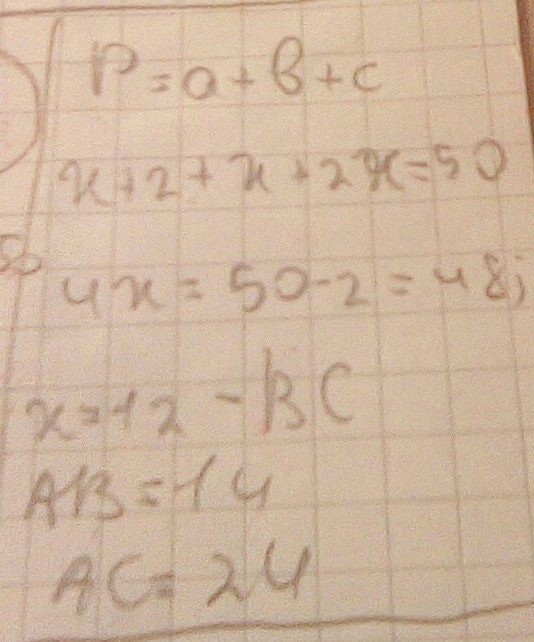 P = a + b + c
x + 2 + x + 2x = 50
50
4x = 50 - 2 = 48;
x = 12 - BC
AB = 14
AC = 24